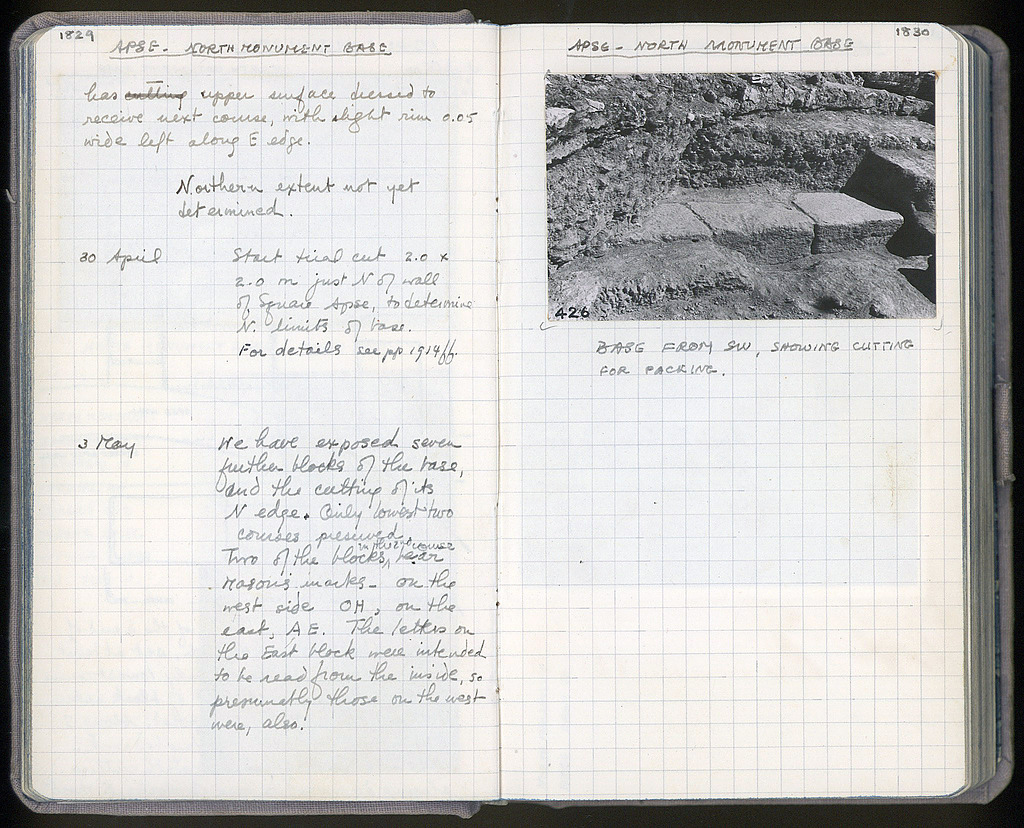 1829
APSE - NORTH MONUMENT BASE
has cutting upper surface dressed to
receive next course, with slight rim 0.05
wide left along E edge.
Northern extent not yet
determined.
30 April
Start trial cut 2.0 x
2.0 m just N of wall
of Square Apse, to determine
N. limits of base.
For details see pp 1914ff.
3 May
We have exposed seven
further blocks of the base,
and the cutting of its
N edge. Only lowest two
courses preserved.
in the 2nd course
Two of the blocks, bear
mason's marks - on the
west side OH, on the
east, AE. The letters on
the East block were intended
to be read from the inside, so
presumably those on the west
were, also.
1830
APSE - NORTH MONUMENT BASE
426
BASE FROM SW, SHOWING CUTTING
FOR PACKING.